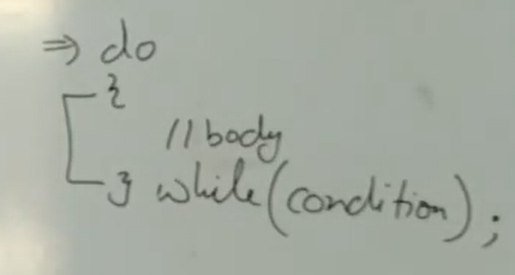 ⇒ do
{
//body
} while(condition);